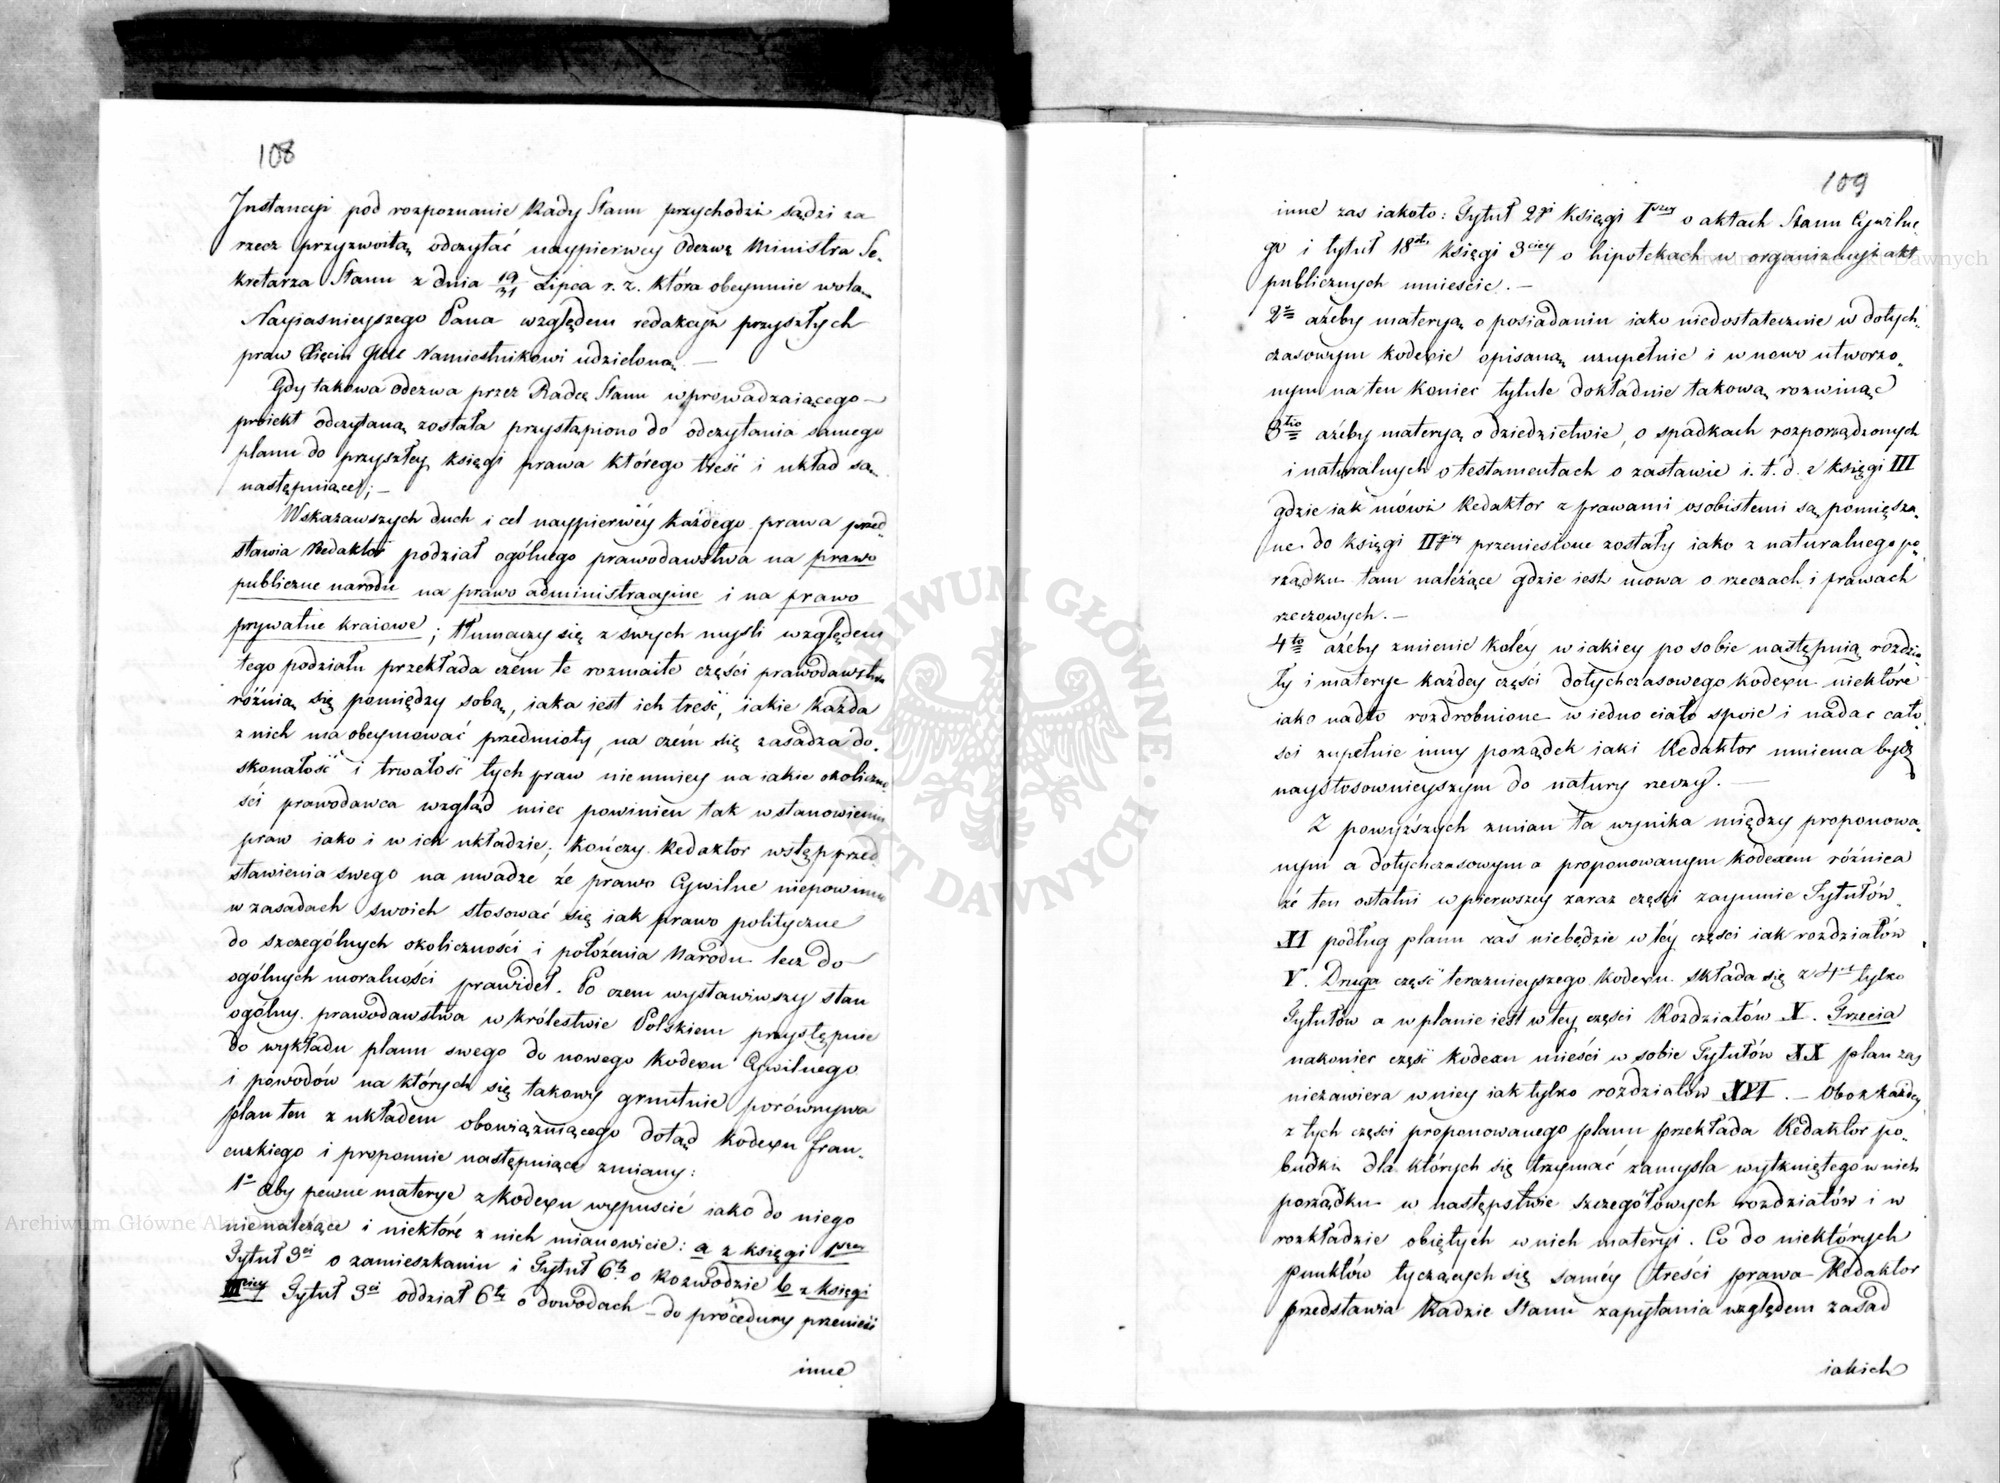 108
Instancyi pod rozpoznanie Rady Stanu przychodzi sądzi za
rzecz przyzwoitą odczytać naypierwey Odezwę Ministra Se-
kretarza Stanu z dnia 19/31 Lipca r. z. która obeymuie wolą
Nayiasnieyszego Pana względem redakcyi przyszłych
praw Xięciu Namiestnikowi udzieloną. —
Gdy takowa Odezwa przez Radcę Stanu wprowadzaiącego
proiekt odczytaną została przystąpiono do odczytania samego
planu do przyszłey księgi prawa którego treść i układ są
następuiące; —
Wskazawszych duch i cel naypierwéy każdego prawa przed-
stawia Redaktor podział ogólnego prawodawstwa na prawo
publiczne narodu na prawo administracyine i na prawo
prywatne kraiowe; tłumaczy się z swych mysli względem
tego podziału przekłada czém te rozmaite części prawodawstwa
różnią się pomiędzy sobą, iaka iest ich treść, iakie każda
z nich ma obeymować przedmioty, na czém się zasadza do-
skonałość i trwałość tych praw niemniey na iakie okoliczno-
ści prawodawca wzgląd miec powinien tak w stanowieniu
praw iako i w ich układzie; kończy Redaktor wstęp przed
stawienia swego na uwadze że prawo Cywilne niepowinno
w zasadach swoich stosować się iak prawo polityczne
do szczególnych okoliczności i położenia Narodu lecz do
ogólnych moralności prawideł. Po czem wystawiwszy stan
ogólny prawodawstwa w Królestwie Polskiem przystępuie
do wykładu planu swego do nowego Kodexu Cywilnego
i powodów na których się takowy gruntuie porównywa
plan ten z układem obowiązuiącego dotąd Kodexu fran-
cuzkiego i proponuie następuiące zmiany:
1° aby pewne materye z Kodexu wypuscić iako do niego
nienależące i niektóre z nich mianowicie: a z księgi 1szey
Tytuł 3ci o zamieszkaniu i Tytuł 6ty o Rozwodzie b z księgi
IIIciey Tytuł 3ci oddział 6ty o dowodach — do procedury przenieść
inne
109
inne zas iakoto: Tytuł 2gi księgi Iszey o aktach Stanu Cywilne-
go i tytuł 18sty księgi 3ciey o hipotekach w organizacyi akt
publicznych umieścić. —
2do ażeby materyą o posiadaniu iako niedostatecznie w dotych-
czasowym kodexie opisaną uzupełnić i w nowo utworzo-
nym na ten koniec tytule dokładnie takową rozwinąć
3tio ażeby materyą o dziedzictwie, o spadkach rozporządzonych
i naturalnych o testamentach o zastawie i. t. d. z księgi III
gdzie iak mówi Redaktor z prawami osobistemi są pomięsza-
ne do księgi IIgiey przeniesione zostały iako z naturalnego po-
rządku tam należące gdzie iest mowa o rzeczach i prawach
rzeczowych. —
4to ażeby zmienić koléy w iakiey po sobie następuią rozdzia-
ły i materye każdey części dotychczasowego kodexu niektóre
iako nadto rozdrobnione w iedno ciało spoić i nadac cało-
sci zupełnie inny porządek iaki Redaktor mniema być
naystosownieyszym do natury rzeczy. —
Z powyższych zmian ta wynika między proponowa-
nym a dotychczasowym a proponowanym kodexem różnica
że ten ostatni w pierwszéy zaraz części zaymuie Tytułów
XI podług planu zaś niebędzie w téy części iak rozdziałów
V. Druga część teraznieyszego kodexu składa się z 4ch tylko
Tytułów a w planie iest w tey części Rozdziałów X. Trzecia
nakoniec część kodexu mieści w sobie Tytułów XX plan zaś
niezawiera w niey iak tylko rozdziałów XVI. — Obok każdey
z tych części proponowanego planu przekłada Redaktor po-
budki dla których się trzymać zamysla wytkniętego w nich
porządku w następstwie szczegółowych rozdziałów i w
rozkładzie obiętych w nich materyi. Co do niektórych
punktów tyczących się saméy treści prawa Redaktor
przedstawia Radzie Stanu zapytania względem zasad
iakich
Archiwum Główne Akt Dawnych
ARCHIWUM GŁÓWNE AKT DAWNYCH